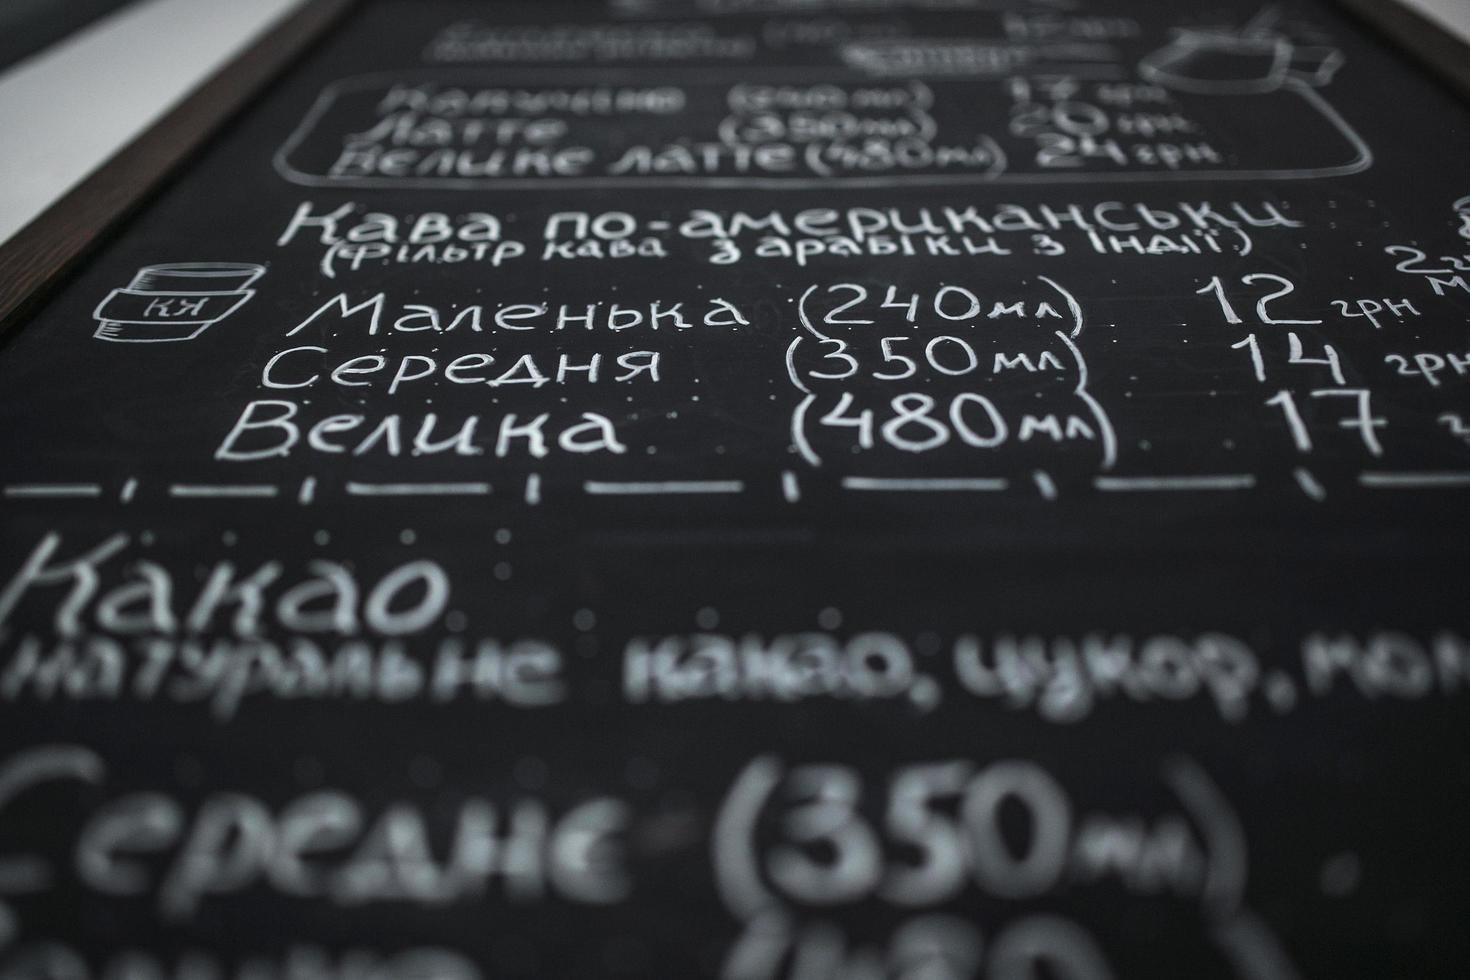 Капучіно (240 мл) 17 грн
Латте (350мл) 20 грн
Велике латте (480мл) 24 грн
Кава по-американськи
(Фільтр кава з арабіки з Індії)
КЯ
Маленька (240мл) 12 грн
Середня (350мл) 14 грн
Велика (480мл) 17
Какао
натуральне какао, цукор,
Середнє (350мл)